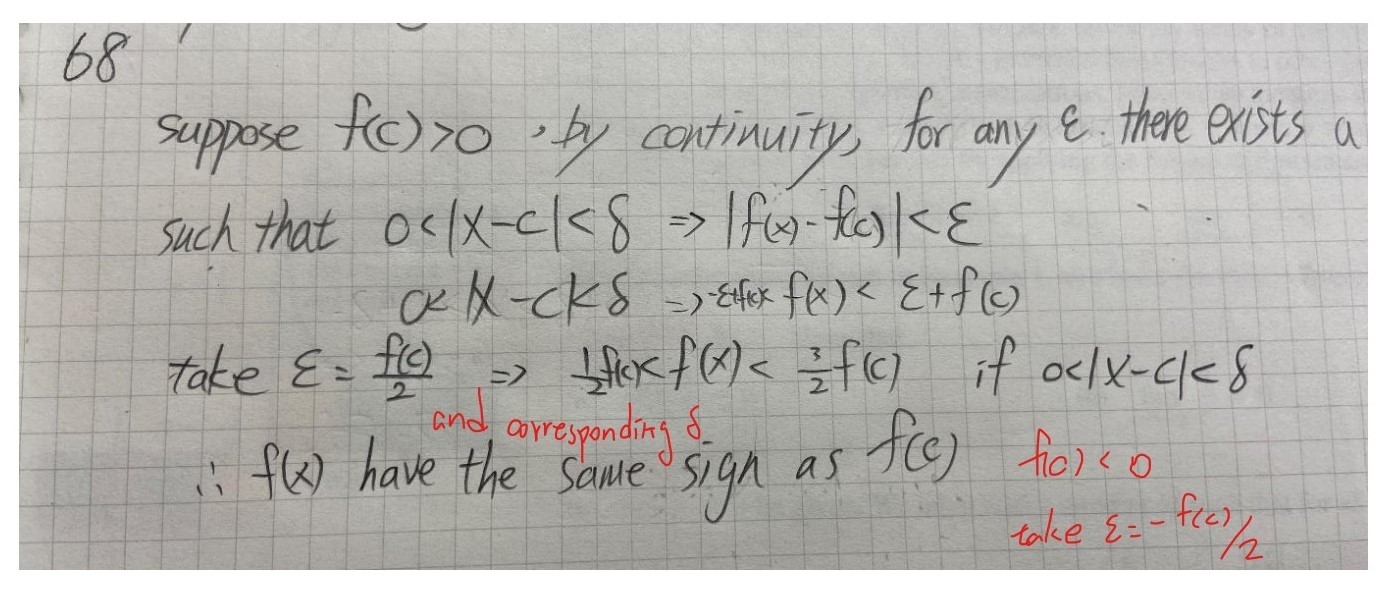 68
suppose f(c)>0, by continuity, for any ε. there exists a
such that 0<|x-c|<δ => |f(x)-f(c)|<ε
0<|x-c|<δ => -ε+f(c)< f(x)< ε+f(c)
take ε = f(c)/2 => 1/2 f(c)< f(x)< 3/2 f(c) if 0<|x-c|<δ
and corresponding δ
∴ f(x) have the same sign as f(c) f(c)<0
take ε=-f(c)/2